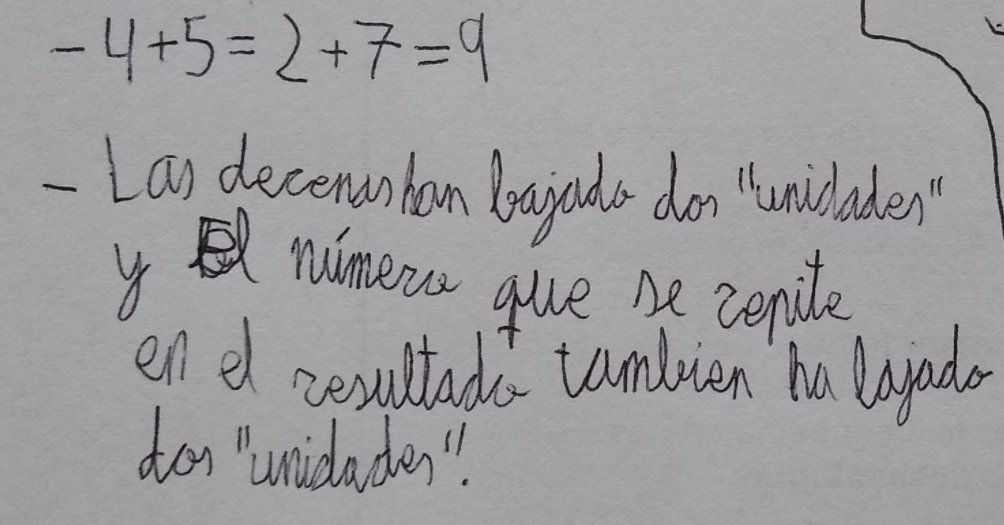 - 4+5=2+7=9
- Las decenas han bajado dos "unidades"
y El número que se repite
en el resultado tambien ha bajado
dos "unidades".